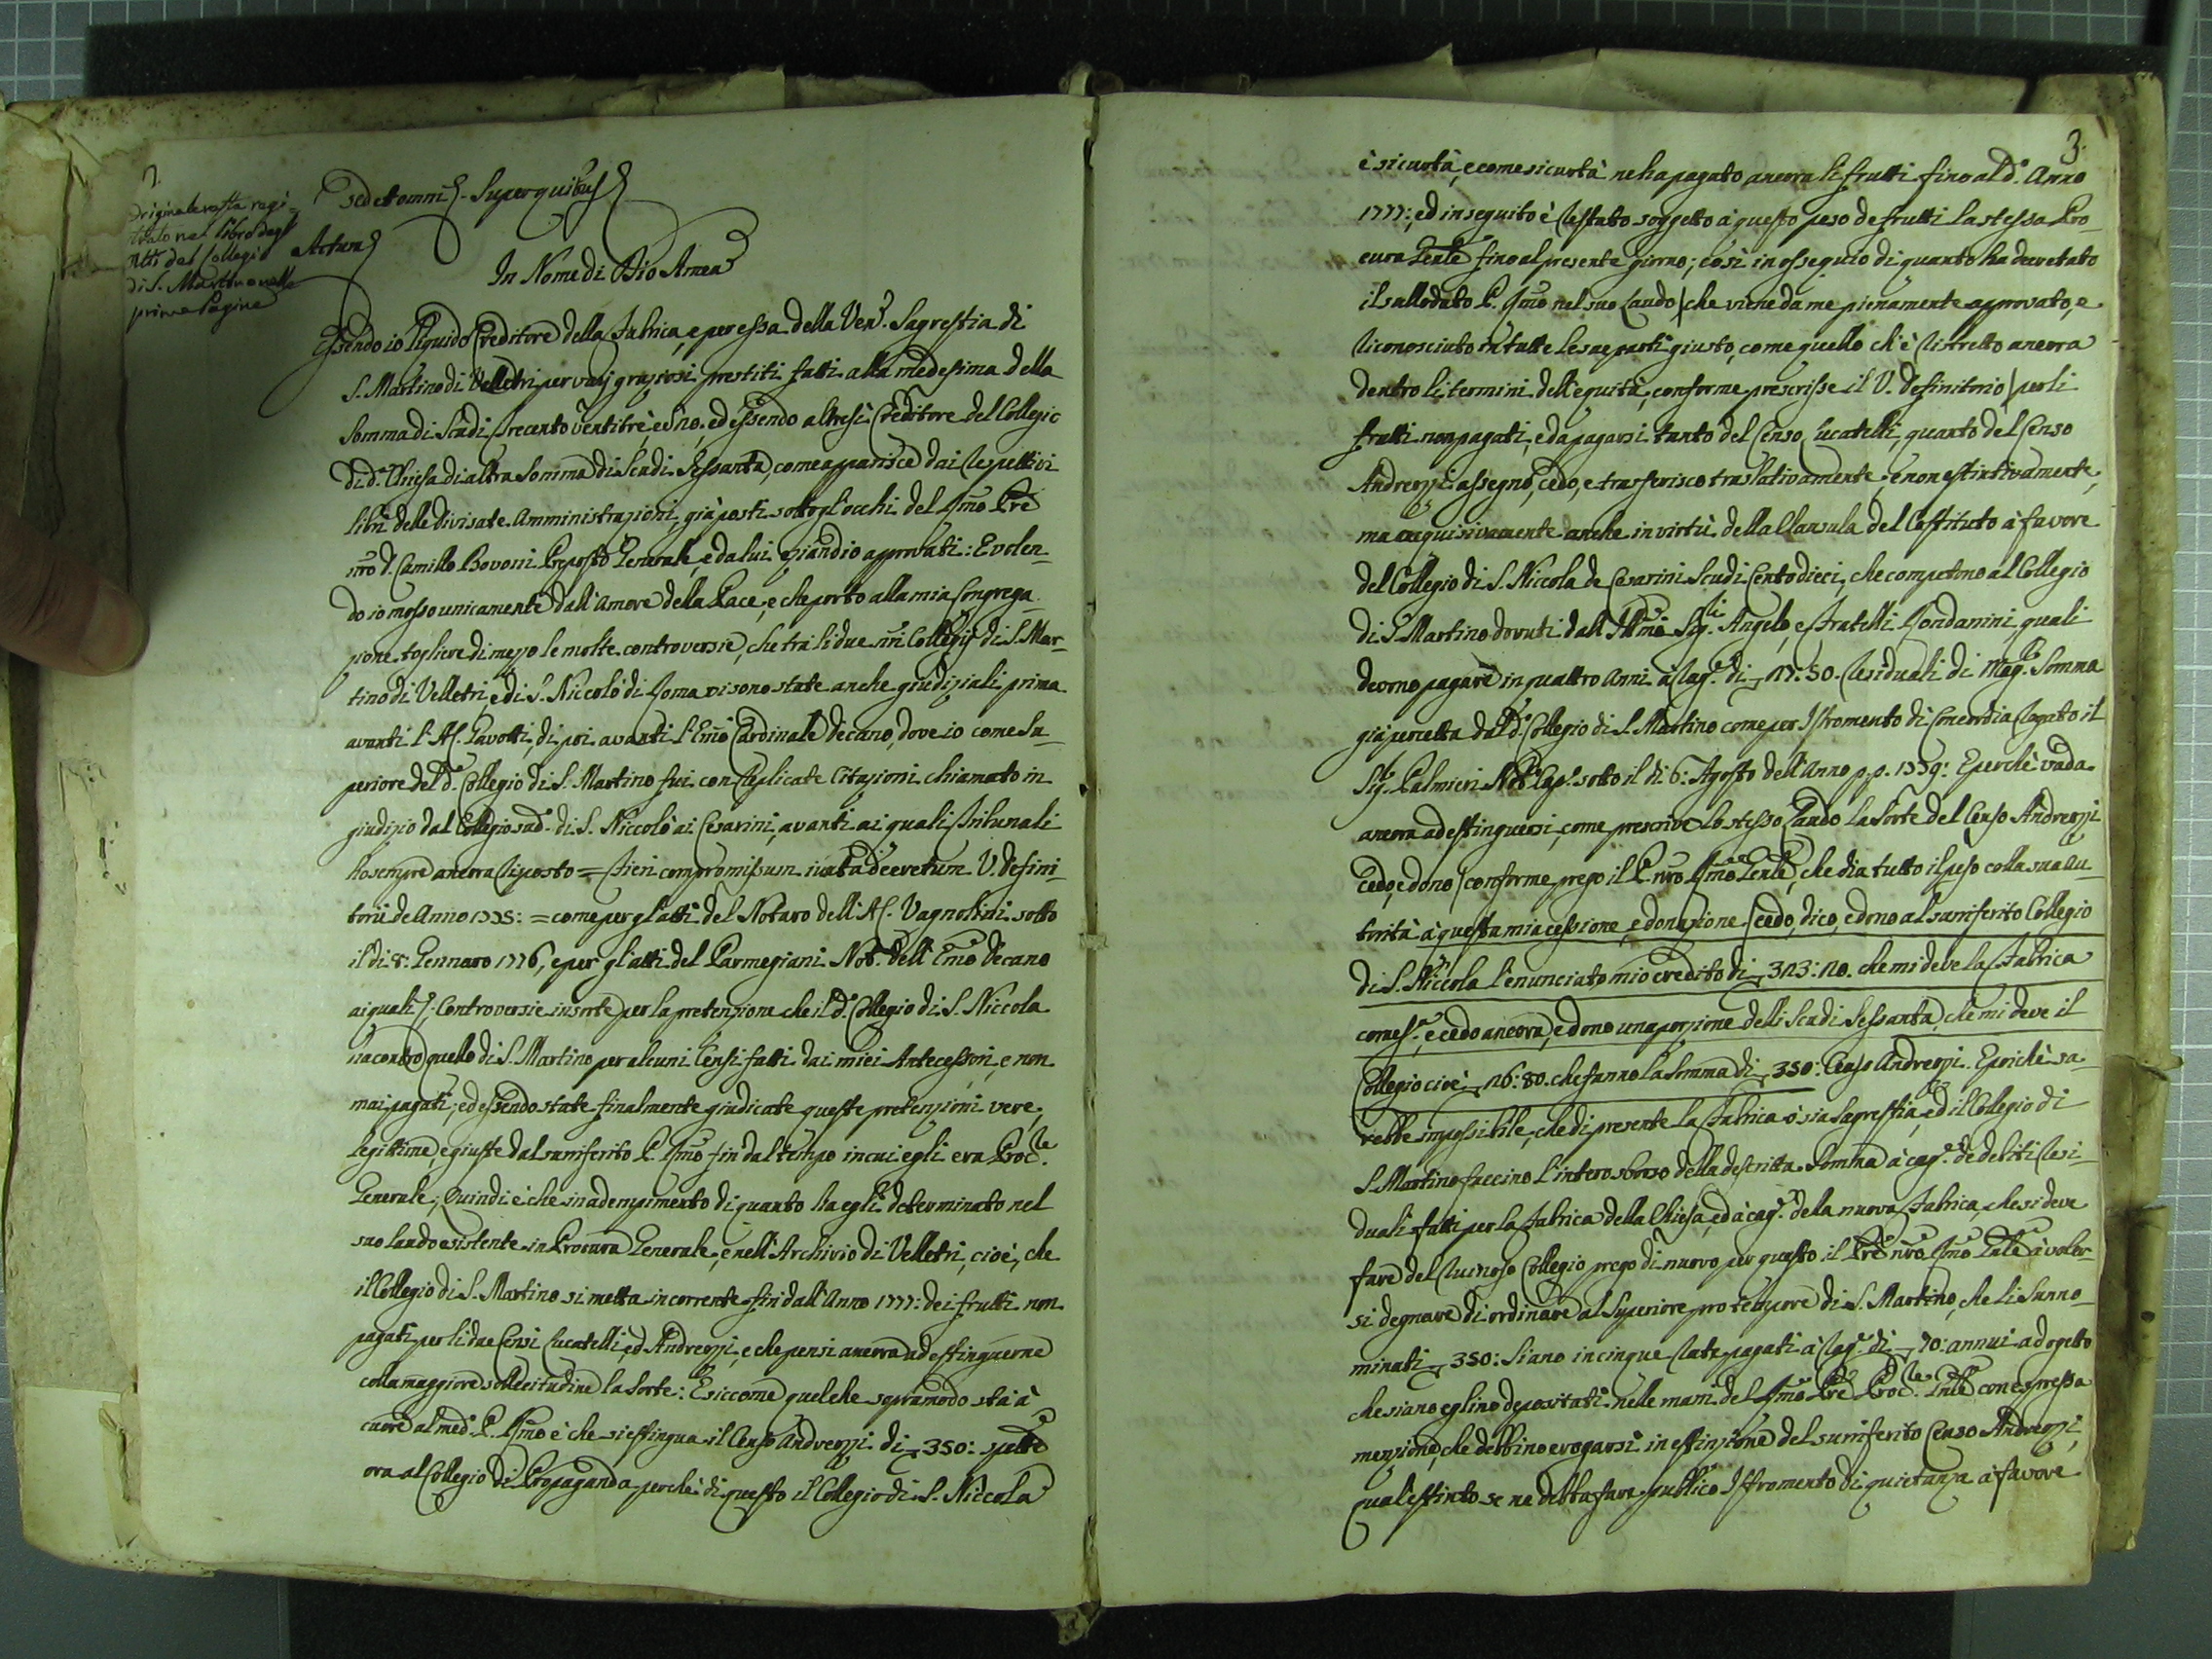 2.
Originale resta regi-
strato nel libro degl'
Atti del Collegio
di S. Martino nelle
prime Pagine
sed et omni. Super quibus
Actum
In Nome di Dio Amen
Essendo io liquido Creditore della Fabrica, e per essa della Ven. Sagrestia di
S. Martino di Velletri per varj graziosi prestiti fatti alla medesima della
Somma di Scudi trecento ventitrè, e 20. ed essendo altresì Creditore del Collegio
di d.ª Chiesa di altra Somma di Scudi Sessanta, come apparisce dai respettivi
libri delle divisate Amministrazioni, già posti sotto gl'occhi del Rmo Pre
nro D. Camillo Bovoni Preposto Generale, e da lui eziandio approvati: E volen-
do io mosso unicamente dall'Amore della Pace, e che porto alla mia Congrega-
zione togliere di mezzo le molte controversie, che tra li due nri Collegij di S. Mar-
tino di Velletri, e di S. Niccolò di Roma vi sono state anche giudiziali prima
avanti l'AC. Pavotti, di poi avanti l'Emo Cardinale Decano, dove io come Su-
periore del d.º Collegio di S. Martino fui con replicate Citazioni chiamato in
giudizio dal Collegio sud.º di S. Niccolò ai Cesarini, avanti ai quali Tribunali
ho sempre ancora risposto = fieri compromissum iuxta decretum V. Defini-
torii de Anno 1775: = come per gl'atti del Notaro dell'AC. Vagnolini sotto
il di 8: Gennaro 1776, e per gl'atti del Parmegiani Not. dell'Emo Decano
ai quali; Controversie insorte per la pretenzione che il d.º Collegio di S. Niccola
ha contro quello di S. Martino per alcuni Censi fatti dai miei Antecessori, e non
mai pagati; ed essendo state finalmente giudicate queste pretenzioni vere,
legittime, e giuste dal surriferito P. Rmo fin dal tempo in cui egli era Proc.re
Generale; Quindi è che in adempimento di quanto ha egli determinato nel
suo laudo esistente in Procura Generale, e nell'Archivio di Velletri, cioè, che
il Collegio di S. Martino si metta in corrente fin dall'Anno 1777: dei frutti non
pagati per li due Censi Lucatelli, ed Andreozzi, e che pensi ancora ad estinguerne
colla maggiore sollecitudine la Sorte: E siccome quel che sopramodo stà à
cuore al med.º P. Rmo è che si estingua il Censo Andreozzi di 350: spett.e
ora al Collegio di Propaganda perchè di questo il Collegio di S. Niccola
3.
è sicurtà, e come sicurtà ne ha pagato ancora li frutti fino al d.º Anno
1777:, ed in seguito è restato soggetto à questo peso de frutti la stessa Pro-
cura Gen̅le fino al presente giorno; così in ossequio di quanto ha decretato
il sullodato P. Rmo nel suo Laudo (che viene da me pienamente approvato, e
riconosciuto in tutte le sue parti giusto, come quello ch'è ristretto ancora
dentro li termini dell'equità, conforme prescrisse il V. Definitorio) per li
frutti non pagati, e da pagarsi tanto del Censo Lucatelli, quanto del Censo
Andreozzi assegno, cedo, e trasferisco traslativamente, e non estintivamente,
ma acquisivamente anche in virtù della Clausula del Costituto à favore
del Collegio di S. Niccola de Cesarini Scudi Cento dieci, che competono al Collegio
di S. Martino dovuti dall'Illmi Sig.ri Angelo, e Fratelli Rondanini, quali
devono pagare in quattro Anni à rag.e di 27:50. residuali di mag.re Somma
già percetta dal d.º Collegio di S. Martino come per Istromento di Concordia rogato il
Sig. Palmieri Not. Cap. sotto il dì 6: Agosto dell'Anno p.p. 1779: E perchè vada
ancora ad estinguersi, come prescrive lo stesso Laudo la Sorte del Censo Andreozzi
cedo, e dono (conforme prego il P. nro Rmo Gen̅le, che dia tutto il peso colla sua Au-
torità à questa mia cessione, e donazione) cedo, dico, e dono al surriferito Collegio
di S. Niccola l'enunciato mio credito di 323:20. che mi deve la Fabrica
come s.ª, e cedo ancora, e dono una porzione delli Scudi Sessanta, che mi deve il
Collegio cioè 26:80. che fanno la Somma di 350: Censo Andreozzi. E poichè sa-
rebbe impossibile, che di presente la Fabrica ò sia Sagrestia, ed il Collegio di
S. Martino faccino l'intero sborso della descritta Somma à cag.e de debiti resi-
duali fatti per la Fabrica della Chiesa, ed à cag.e della nuova Fabrica, che si deve
fare del ruinoso Collegio prego di nuovo per questo il Pre nro Rmo Gnle à voler-
si degnare di ordinare al Superiore pro tempore di S. Martino, che li sunno-
minati 350: siano in cinque rate pagati à rag.e di 70: annui ad ogetto
che siano eglino depositati nelle mani del Rmo Pre Proc.re Gnle con espressa
menzione, che debbino erogarsi in estinzione del surriferito Censo Andreozzi,
qual'estinto se ne debba fare publico Istromento di quietanza à favore